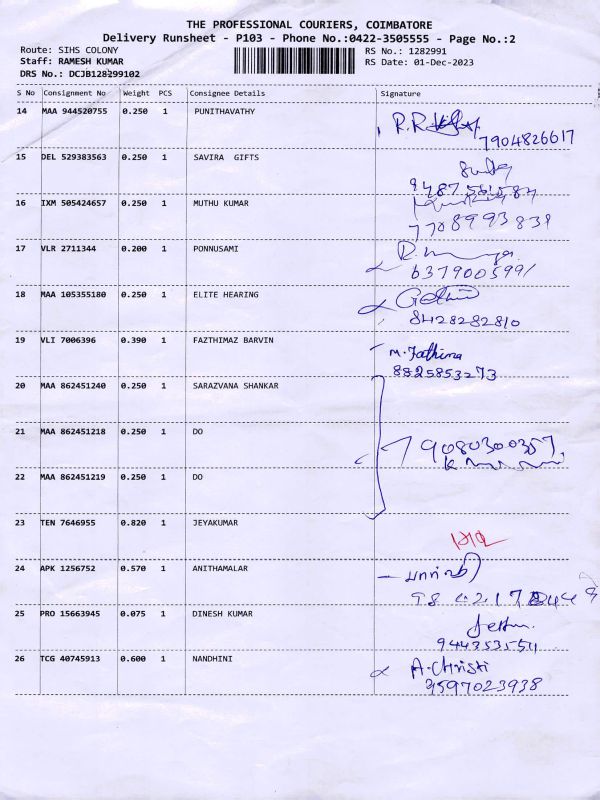 THE PROFESSIONAL COURIERS, COIMBATORE
Delivery Runsheet - P103 - Phone No.:0422-3505555 - Page No.:2
Route: SIHS COLONY RS No.: 1282991
Staff: RAMESH KUMAR RS Date: 01-Dec-2023
DRS No.: DCJB128299102
S No Consignment No Weight PCS Consignee Details Signature
14 MAA 944520755 0.250 1 PUNITHAVATHY
7904826617
15 DEL 529383563 0.250 1 SAVIRA GIFTS
16 IXM 505424657 0.250 1 MUTHU KUMAR
7708993839
17 VLR 2711344 0.200 1 PONNUSAMI
6379005991
18 MAA 105355180 0.250 1 ELITE HEARING
8428282810
19 VLI 7006396 0.390 1 FAZTHIMAZ BARVIN
M. Fathima
8825853273
20 MAA 862451240 0.250 1 SARAZVANA SHANKAR
21 MAA 862451218 0.250 1 DO
9080300357
22 MAA 862451219 0.250 1 DO
23 TEN 7646955 0.820 1 JEYAKUMAR
24 APK 1256752 0.570 1 ANITHAMALAR
25 PRO 15663945 0.075 1 DINESH KUMAR
9443535511
26 TCG 40745913 0.600 1 NANDHINI
A. Christi
9597023938